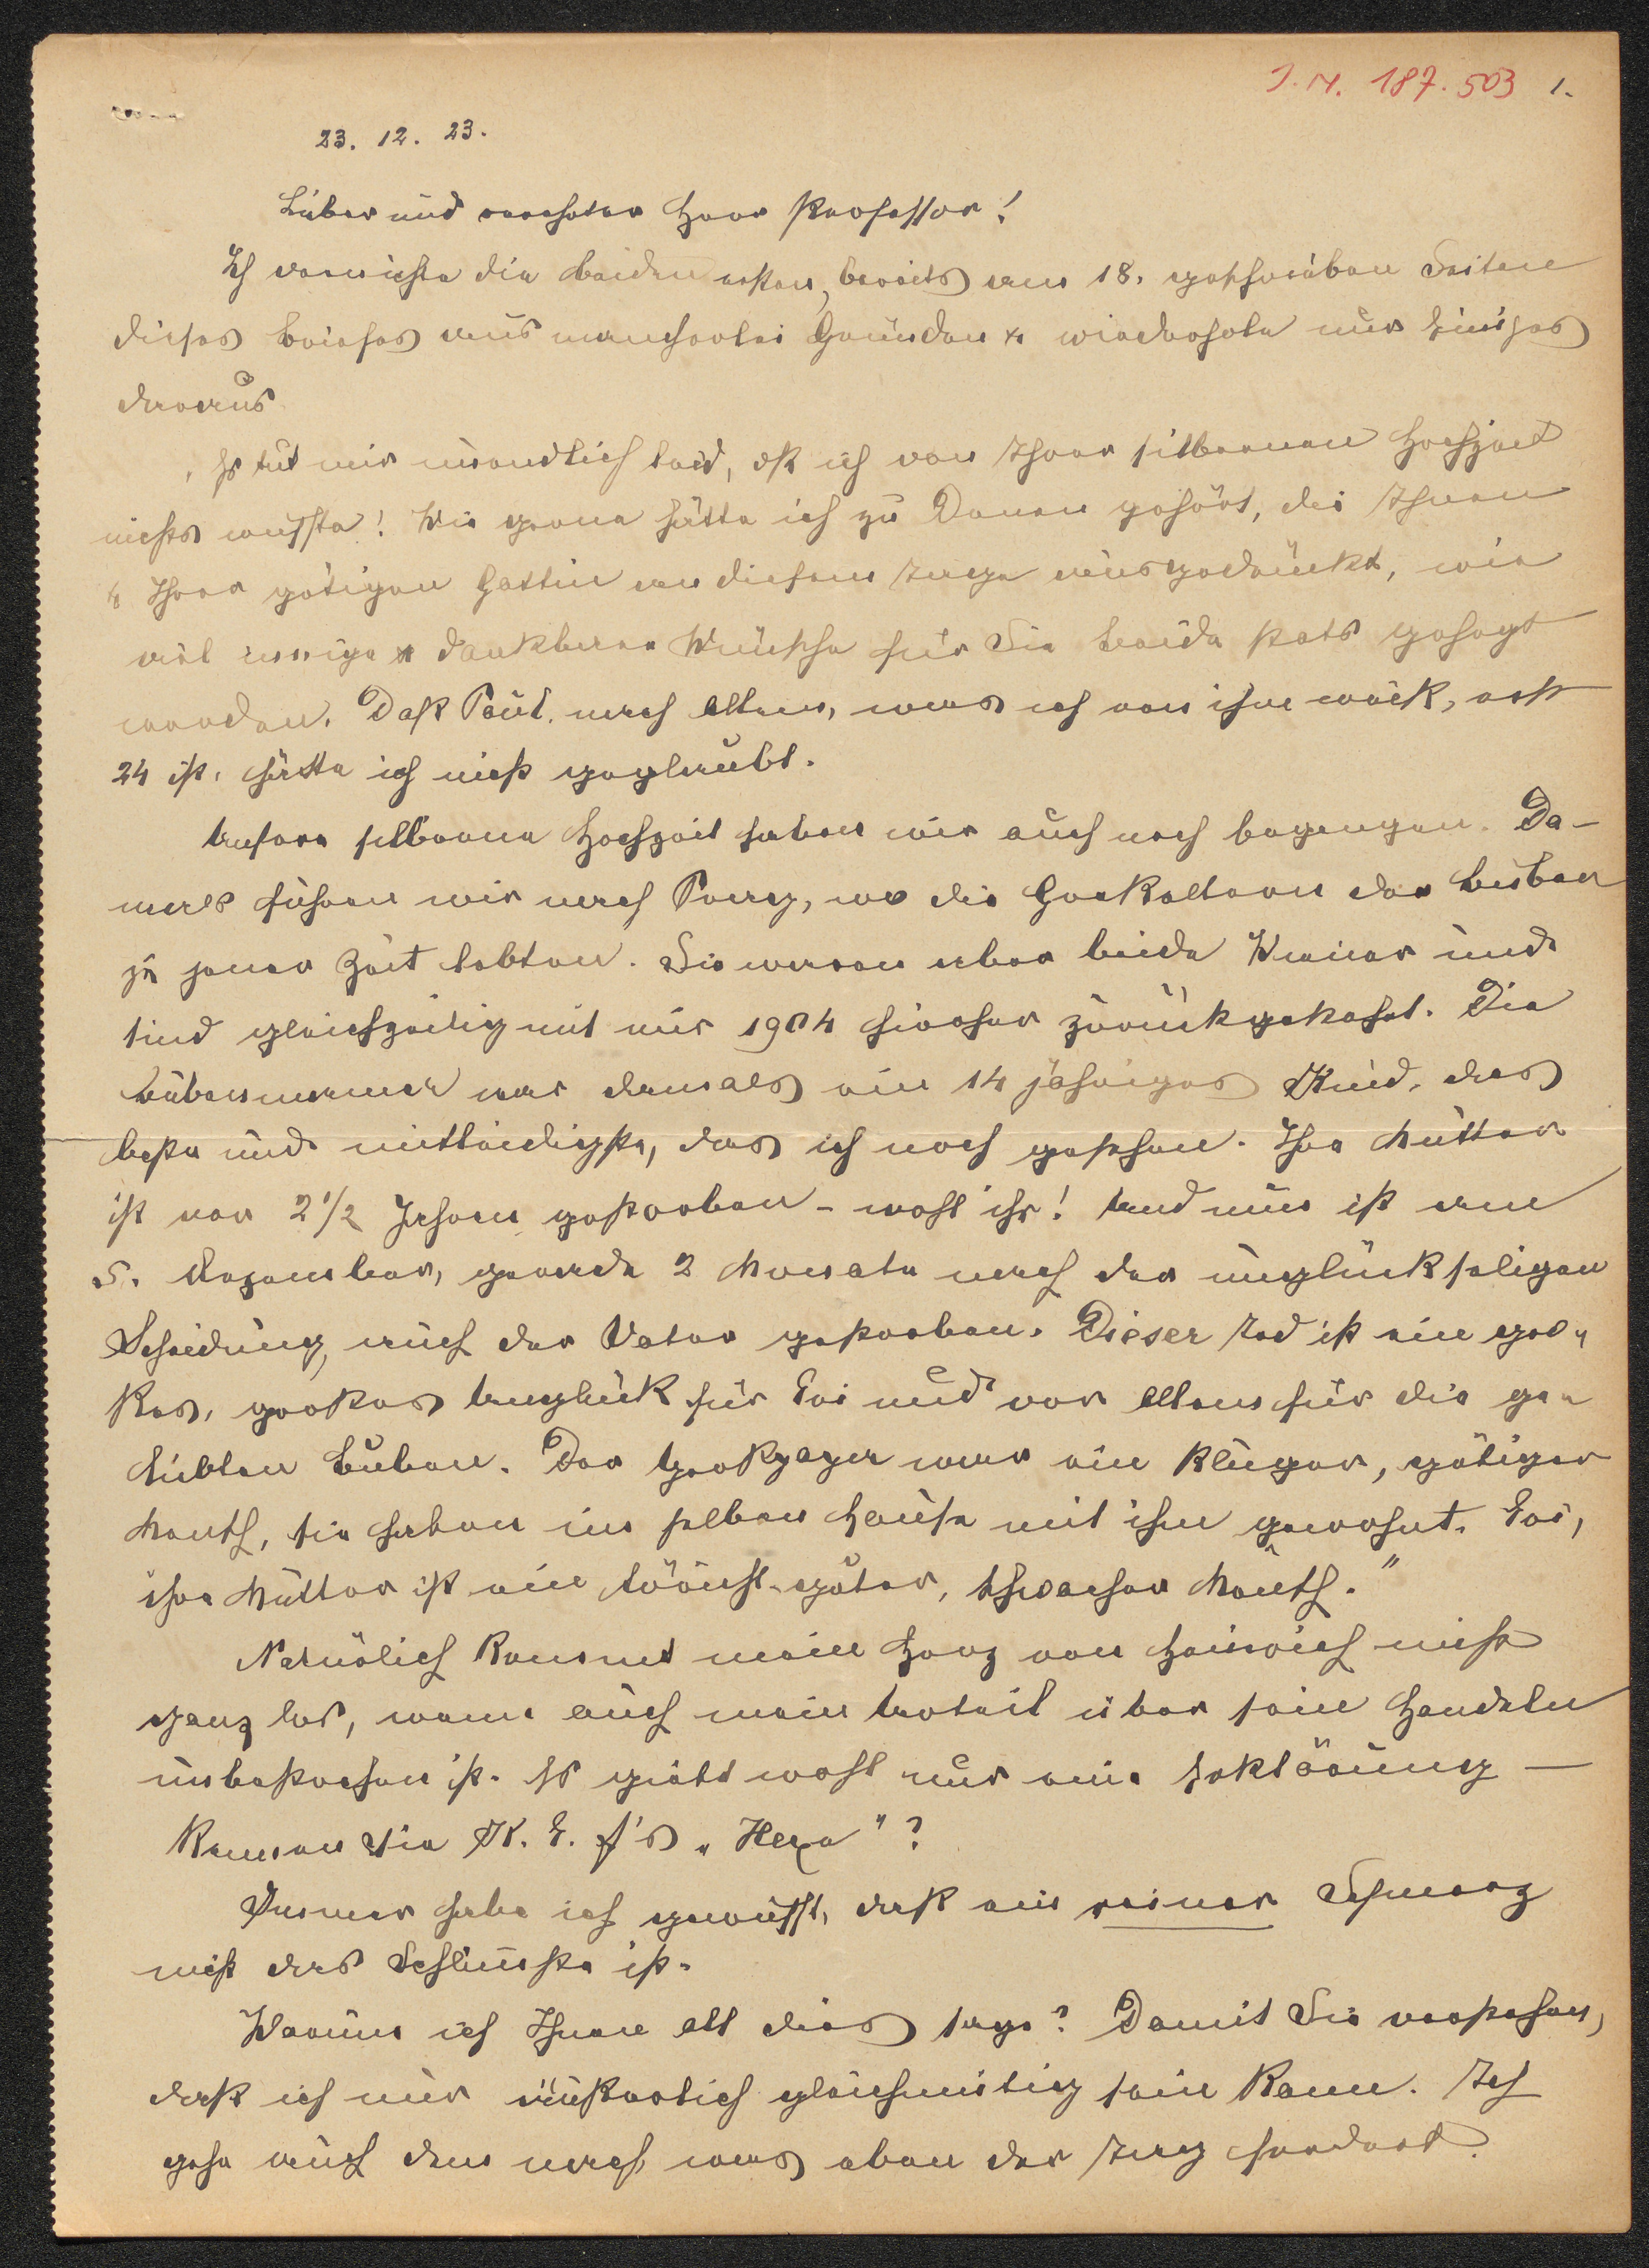 I. N. 187.503 1.
23. 12. 23.
Lieber und verehrter Herr Professor!
Ich vernichte die beiden ersten, bereits am 18. geschrieben Seiten
dieses Briefes aus mancherlei Gründen & wiederhole nur Einiges
daraus.
Es tut mir unendlich leid, dß ich von Ihrer silbernen Hochzeit
nichts wusste! Wie gerne hätte ich zu Denen gehört, die Ihnen
& Ihrer gütigen Gattin an diesem Tage ausgedrückt, wie
viel innige & dankbare Wünsche für Sie beide stets gehegt
werden. Daß Paul, nach allem, was ich von ihm weiß, erst
24 ist, hätte ich nicht geglaubt.
Unsere silberne Hochzeit haben wir auch noch begangen. Da-
mals fuhren wir nach Prag, wo die Großeltern der Buben
zu jener Zeit lebten. Sie waren aber beide Wiener und
sind gleichzeitig mit mir 1904 hierher zurückgekehrt. Die
Bubenmama war damals ein 14 jähriges Kind, das
beste und mitleidigste, das ich noch gesehen. Ihre Mutter
ist vor 2 1/2 Jahren gestorben - wohl ihr! Und nun ist am
5. Dezember, gerade 2 Monate nach der unglückseligen
Scheidung, auch der Vater gestorben. Dieser Tod ist ein gro-
ßes, großes Unglück für Evi und vor allem für die ge-
liebten Buben. Der Großpapa war ein kluger, gütiger
Mensch, sie haben im selben Hause mit ihm gewohnt. Evi,
ihre Mutter ist ein töricht-guter, schwacher Mensch."
Natürlich kommt mein Herz von Heinrich nicht
ganz los, wenn auch mein Urteil über sein Handeln
unbestochen ist. Es giebt wohl nur eine Erklärung —
Kennen Sie K. E. F's „Hexe"?
Immer habe ich gewusst, daß ein reiner Schmerz
nicht das Schlimmste ist.
Warum ich Ihnen all dies sage? Damit Sie verstehen,
daß ich nur äußerlich gleichmütig sein kann. Ich
gehe auch dem nach, was eben der Tag fordert.